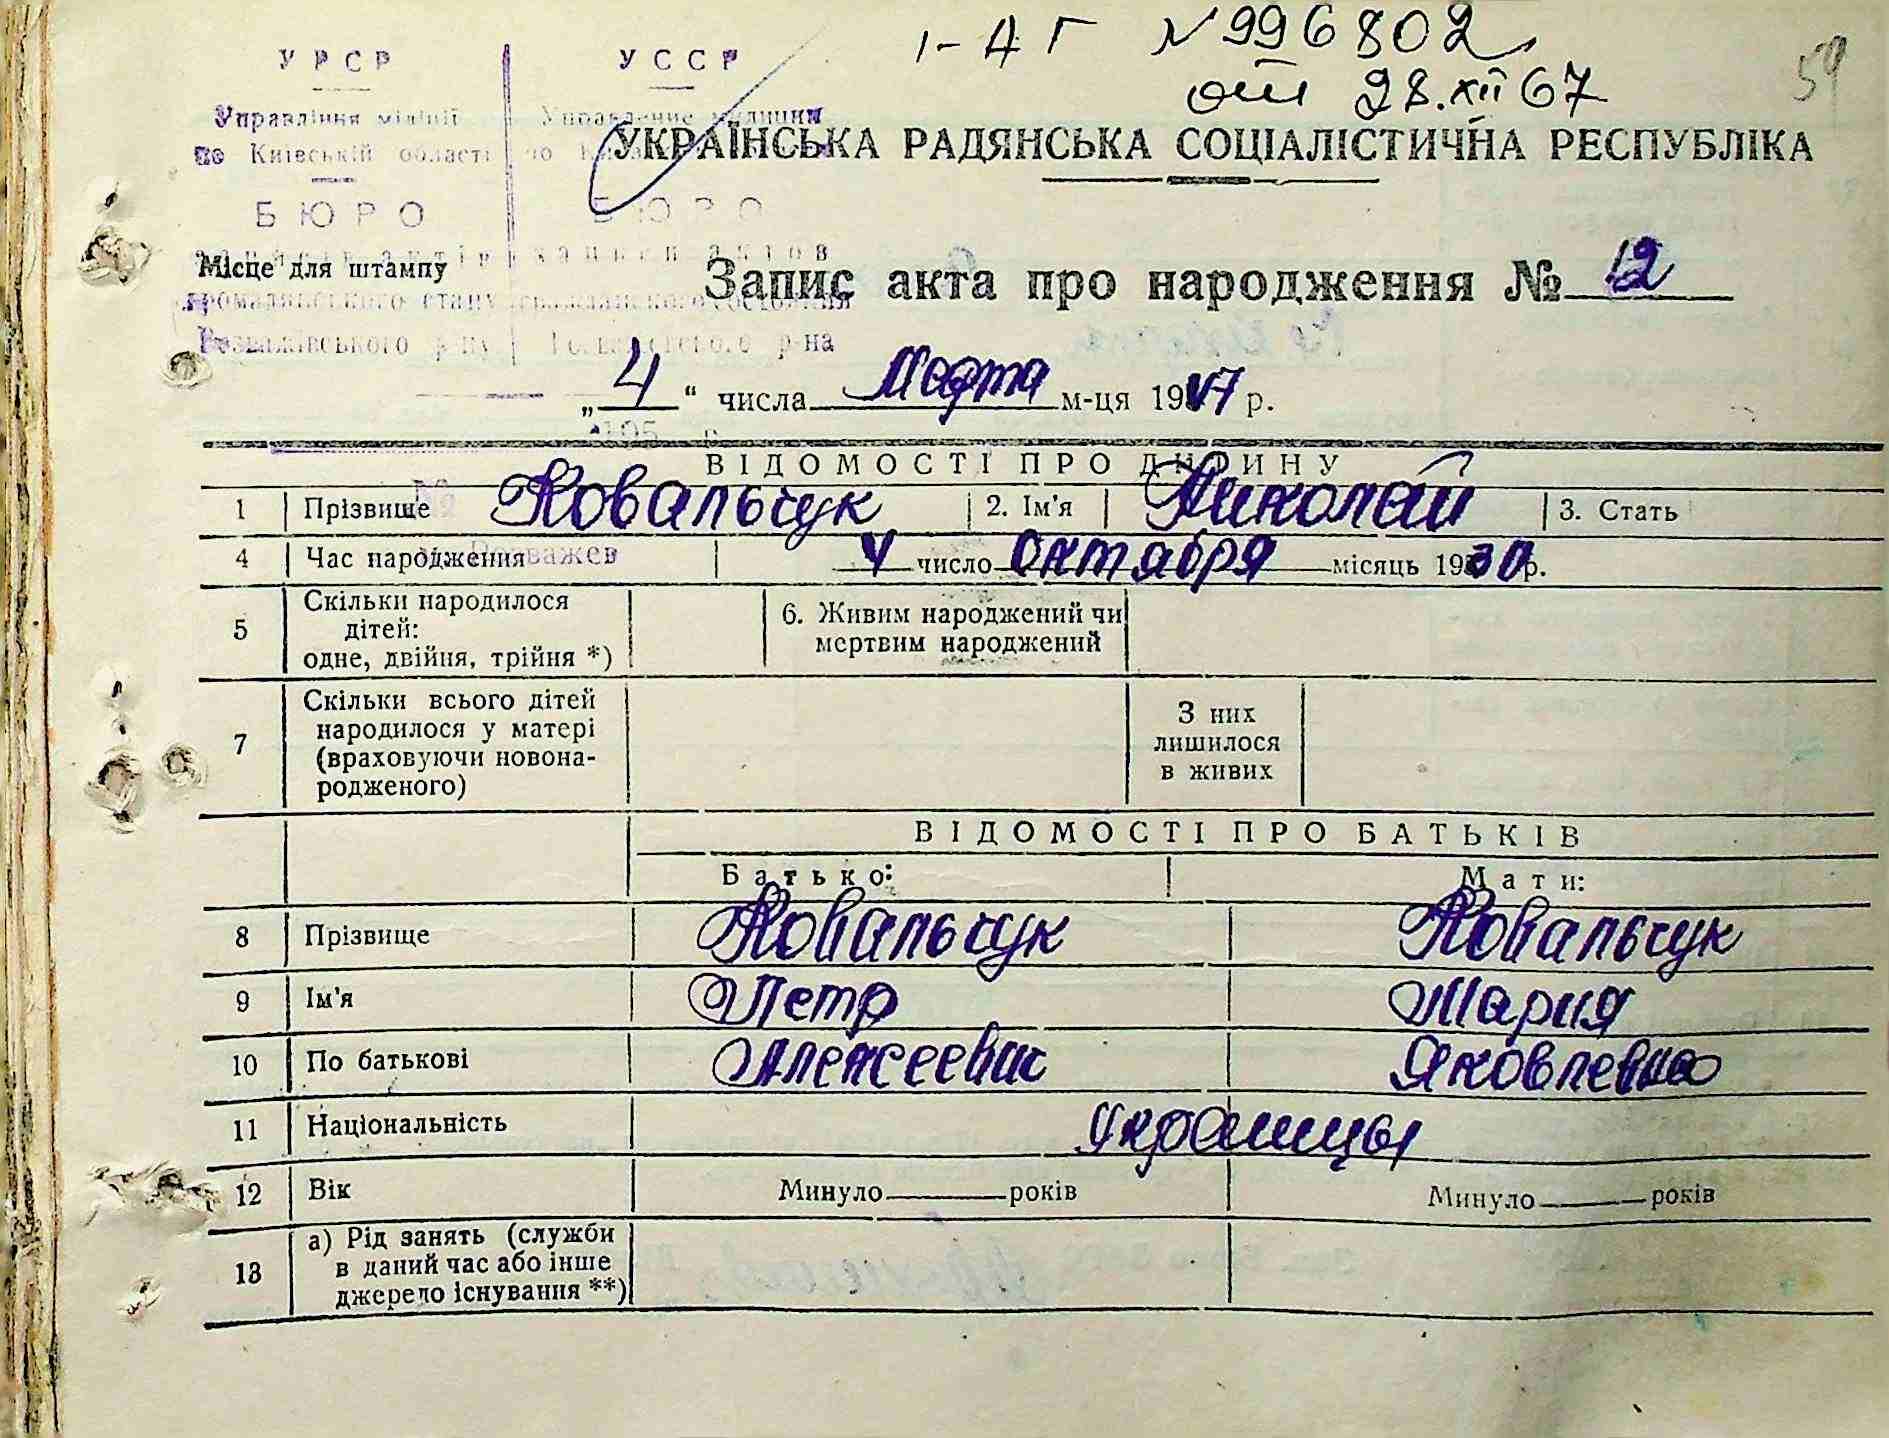 І-АГ №996802
от 28.XII 67
59
УРСР
Управління міліції
по Київській області
БЮРО
записів актів
громадянського стану
Розважівського р-ну
УССР
Управление милиции
по
БЮРО
записей актов
гражданского состояния
Розважевского р-на
195 р.
№
м. Розважев
УКРАЇНСЬКА РАДЯНСЬКА СОЦІАЛІСТИЧНА РЕСПУБЛІКА
Місце для штампу
Запис акта про народження № 12
„4“ числа Марта м-ця 1947 р.
ВІДОМОСТІ ПРО ДИТИНУ
1 Прізвище Ковальчук 2. Ім'я Николай 3. Стать
4 Час народження 4 число Октября місяць 1930 р.
5 Скільки народилося дітей: одне, двійня, трійня *) 6. Живим народжений чи мертвим народжений
7 Скільки всього дітей народилося у матері (враховуючи новонародженого) З них лишилося в живих
ВІДОМОСТІ ПРО БАТЬКІВ
Батько: Мати:
8 Прізвище Ковальчук Ковальчук
9 Ім'я Петр Мария
10 По батькові Алексеевич Яковлевна
11 Національність Украинцы
12 Вік Минуло ______ років Минуло ______ років
13 а) Рід занять (служби в даний час або інше джерело існування **)